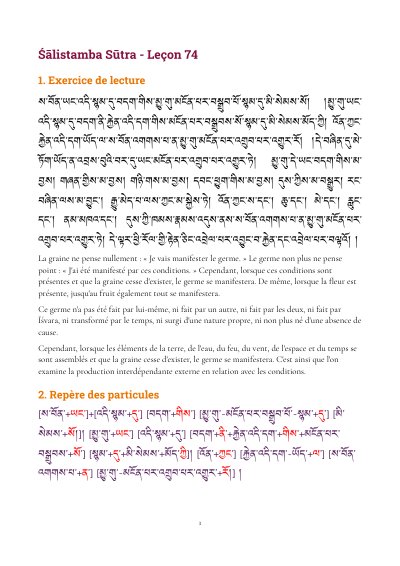 Śālistamba Sūtra - Leçon 74
1. Exercice de lecture
ས་བོན་ཡང་འདི་སྙམ་དུ་བདག་གིས་མྱུ་གུ་མངོན་པར་བསྒྲུབ་པོ་སྙམ་དུ་མི་སེམས་སོ། །མྱུ་གུ་ཡང་
འདི་སྙམ་དུ་བདག་ནི་རྐྱེན་འདི་དག་གིས་མངོན་པར་བསྒྲུབས་སོ་སྙམ་དུ་མི་སེམས་མོད་ཀྱི། འོན་ཀྱང་
རྐྱེན་འདི་དག་ཡོད་ལ་ས་བོན་འགགས་པ་ན་མྱུ་གུ་མངོན་པར་འགྲུབ་པར་འགྱུར་རོ། །དེ་བཞིན་དུ་མེ་
ཏོག་ཡོད་ན་འབྲས་བུའི་བར་དུ་ཡང་མངོན་པར་འགྲུབ་པར་འགྱུར་ཏེ། མྱུ་གུ་དེ་ཡང་བདག་གིས་མ་
བྱས། གཞན་གྱིས་མ་བྱས། གཉི་གས་མ་བྱས། དབང་ཕྱུག་གིས་མ་བྱས། དུས་ཀྱིས་མ་བསྒྱུར། རང་
བཞིན་ལས་མ་བྱུང་། རྒྱུ་མེད་པ་ལས་ཀྱང་མ་སྐྱེས་ཏེ། འོན་ཀྱང་ས་དང་། ཆུ་དང་། མེ་དང་། རླུང་
དང་། ནམ་མཁའ་དང་། དུས་ཀྱི་ཁམས་རྣམས་འདུས་ནས་ས་བོན་འགགས་པ་ན་མྱུ་གུ་མངོན་པར་
འགྲུབ་པར་འགྱུར་ཏེ། དེ་ལྟར་ཕྱི་རོལ་གྱི་རྟེན་ཅིང་འབྲེལ་པར་འབྱུང་བ་རྐྱེན་དང་འབྲེལ་པར་བལྟའོ། །
La graine ne pense nullement : « Je vais manifester le germe. » Le germe non plus ne pense
point : « J'ai été manifesté par ces conditions. » Cependant, lorsque ces conditions sont
présentes et que la graine cesse d'exister, le germe se manifestera. De même, lorsque la fleur est
présente, jusqu'au fruit également tout se manifestera.
Ce germe n'a pas été fait par lui-même, ni fait par un autre, ni fait par les deux, ni fait par
Īśvara, ni transformé par le temps, ni surgi d'une nature propre, ni non plus né d'une absence de
cause.
Cependant, lorsque les éléments de la terre, de l'eau, du feu, du vent, de l'espace et du temps se
sont assemblés et que la graine cesse d'exister, le germe se manifestera. C'est ainsi que l'on
examine la production interdépendante externe en relation avec les conditions.
2. Repère des particules
[ས་བོན་+ཡང་]+[འདི་སྙམ་+དུ་] [བདག་+གིས་] [མྱུ་གུ་-མངོན་པར་བསྒྲུབ་པོ་-སྙམ་+དུ་] [མི་
སེམས་+སོ།]། [མྱུ་གུ་+ཡང་] [འདི་སྙམ་+དུ་] [བདག་+ནི་+རྐྱེན་འདི་དག་+གིས་+མངོན་པར་
བསྒྲུབས་+སོ་] [སྙམ་+དུ་+མི་སེམས་+མོད་ཀྱི།] [འོན་+ཀྱང་] [རྐྱེན་འདི་དག་-ཡོད་+ལ་] [ས་བོན་
འགགས་པ་+ན་] [མྱུ་གུ་-མངོན་པར་འགྲུབ་པར་འགྱུར་+རོ།] །
1